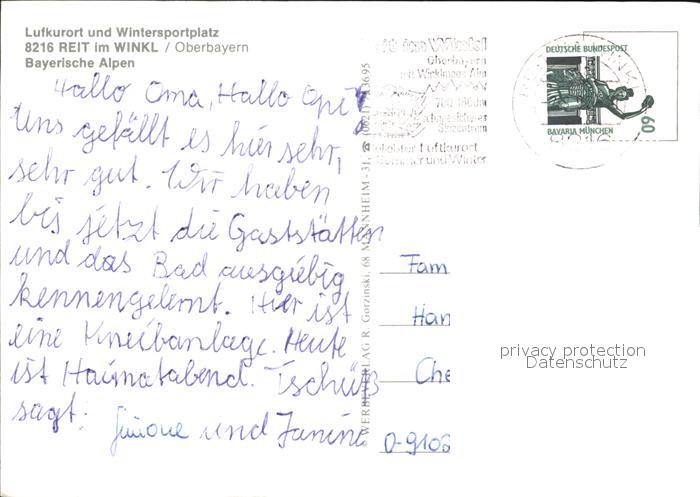 Lufkurort und Wintersportplatz
8216 REIT im WINKL / Oberbayern
Bayerische Alpen
Hallo Oma, Hallo Opi
Uns gefällt es hier sehr,
sehr gut. Wir haben
bis jetzt die Gaststätten
und das Bad ausgiebig
kennengelernt. Hier ist
eine Kneibanlage. Heute
ist Haimatabend. Tschüß
sagt:
Simone und Janine
WERBEVERLAG R. Gorzinski, 68 MANNHEIM - 31,
Oberbayern
mit Winklmoos Alm
700-1860m
Schneesicheres
Skizentrum
beliebter Luftkurort
Sommer und Winter
DEUTSCHE BUNDESPOST
BAVARIA MÜNCHEN
60
8216
Fam
Han
Che
O-9106
privacy protection
Datenschutz